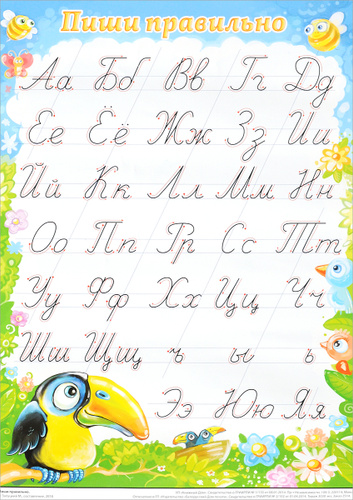 Пиши правильно
Аа Бб Вв Гг Дд
Ее Ёё Жж Зз Ии
Йй Кк Лл Мм Нн
Оо Пп Рр Сс Тт
Уу Фф Хх Цц Чч
Шш Щщ ъ ы ь
Ээ Юю Яя